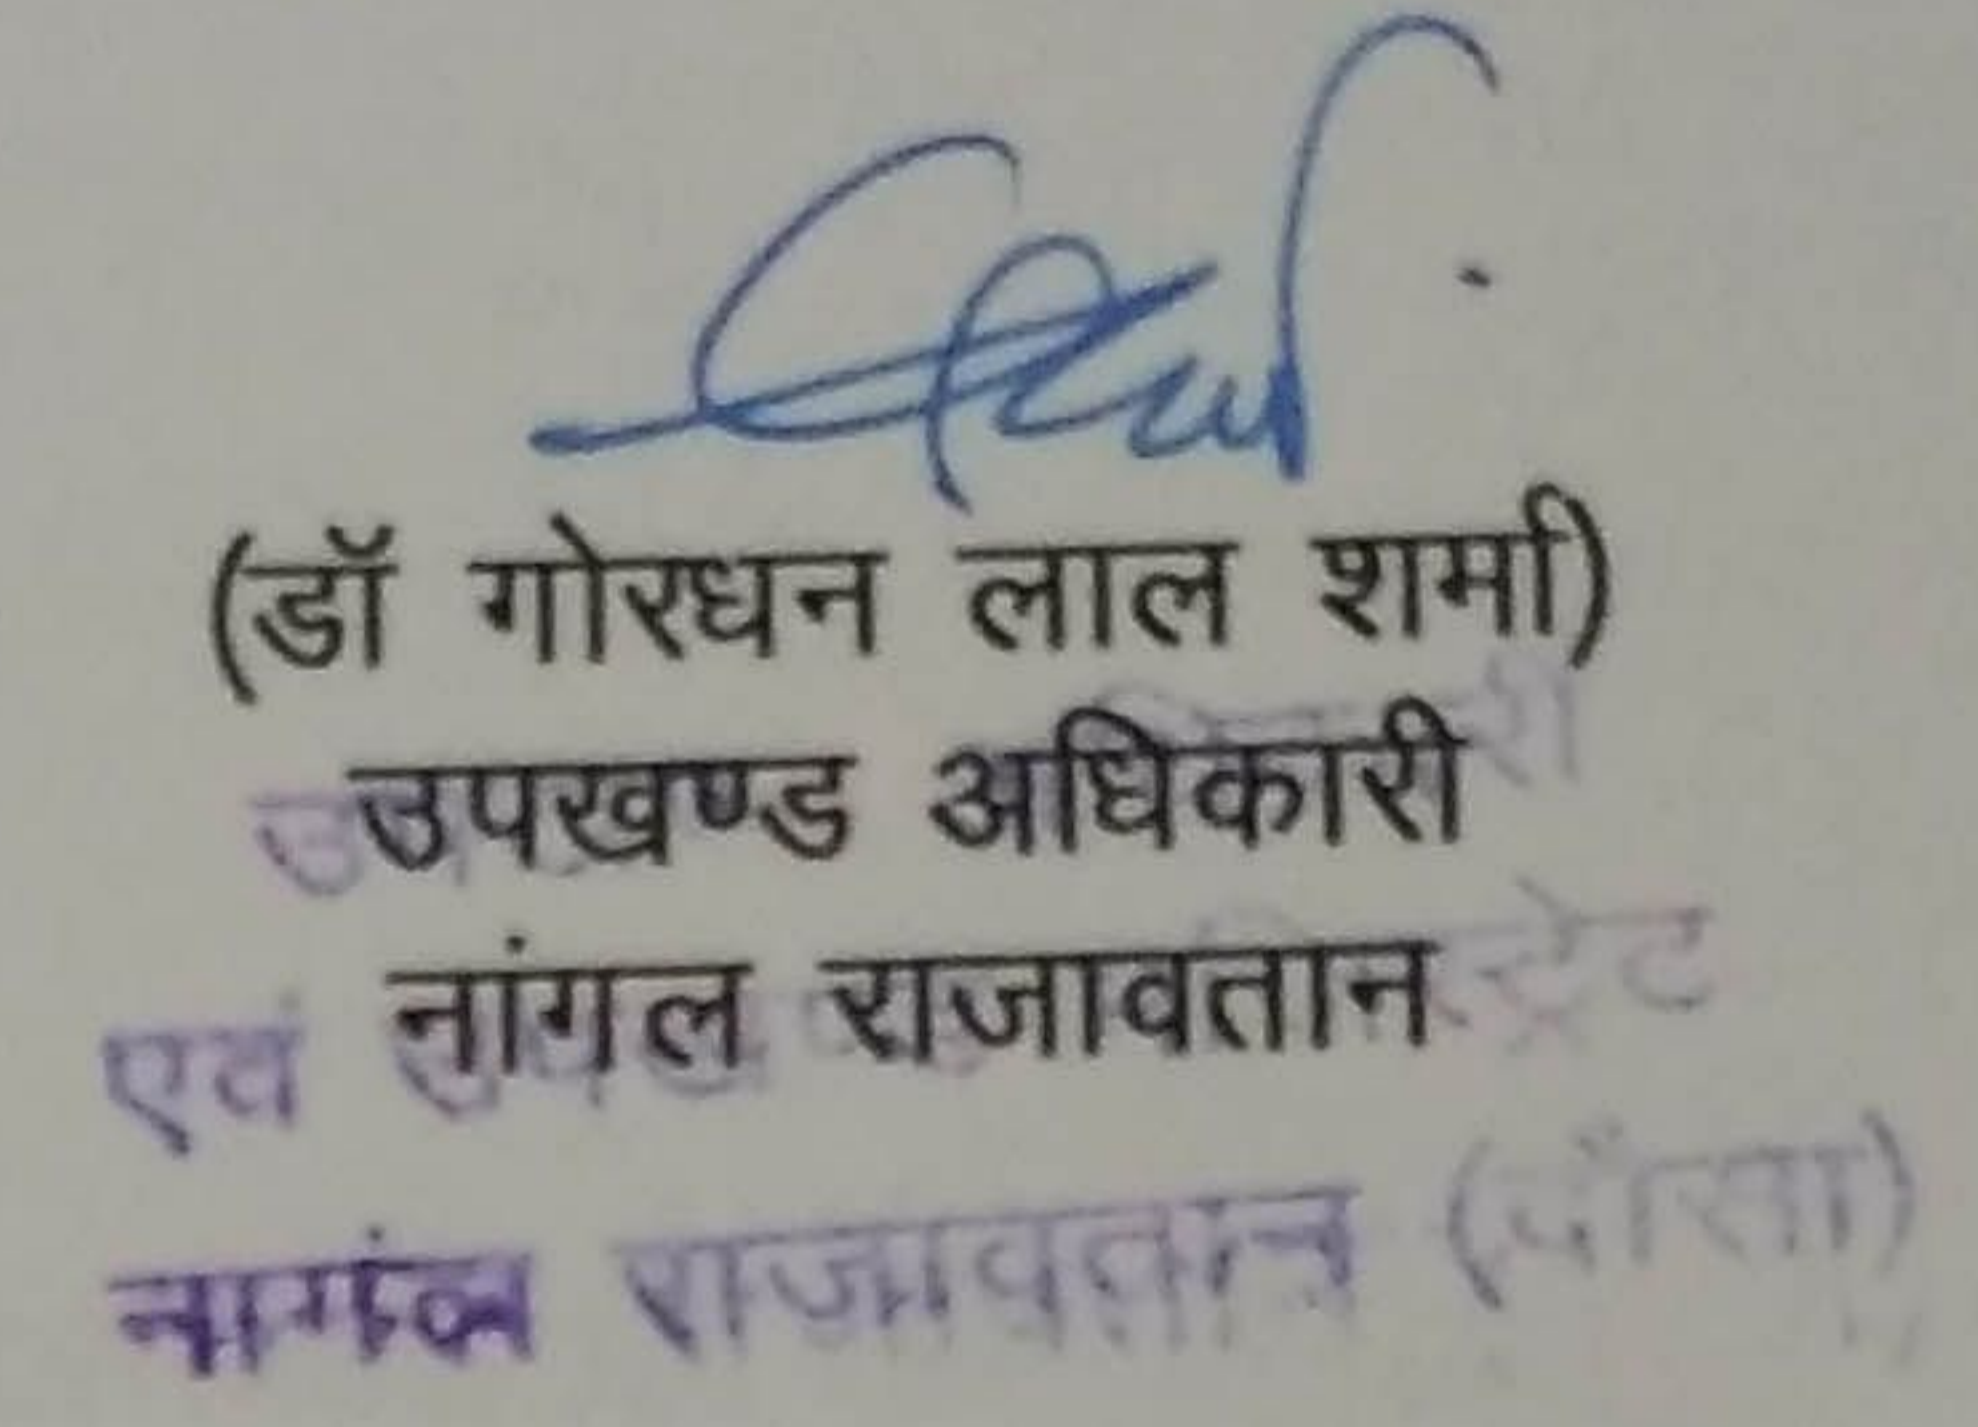 (डॉ गोरधन लाल शर्मा)
उपखण्ड अधिकारी
नांगल राजावतान
एवं
नागंल राजावतान (दौसा)